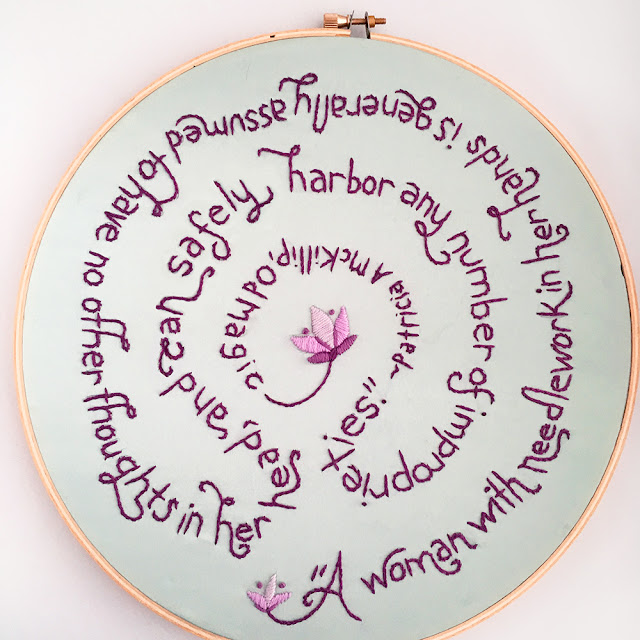 "A woman with needlework in her hands is generally assumed to have no other thoughts in her head, and can safely harbor any number of improprieties." -Patricia A McKillip, od magic